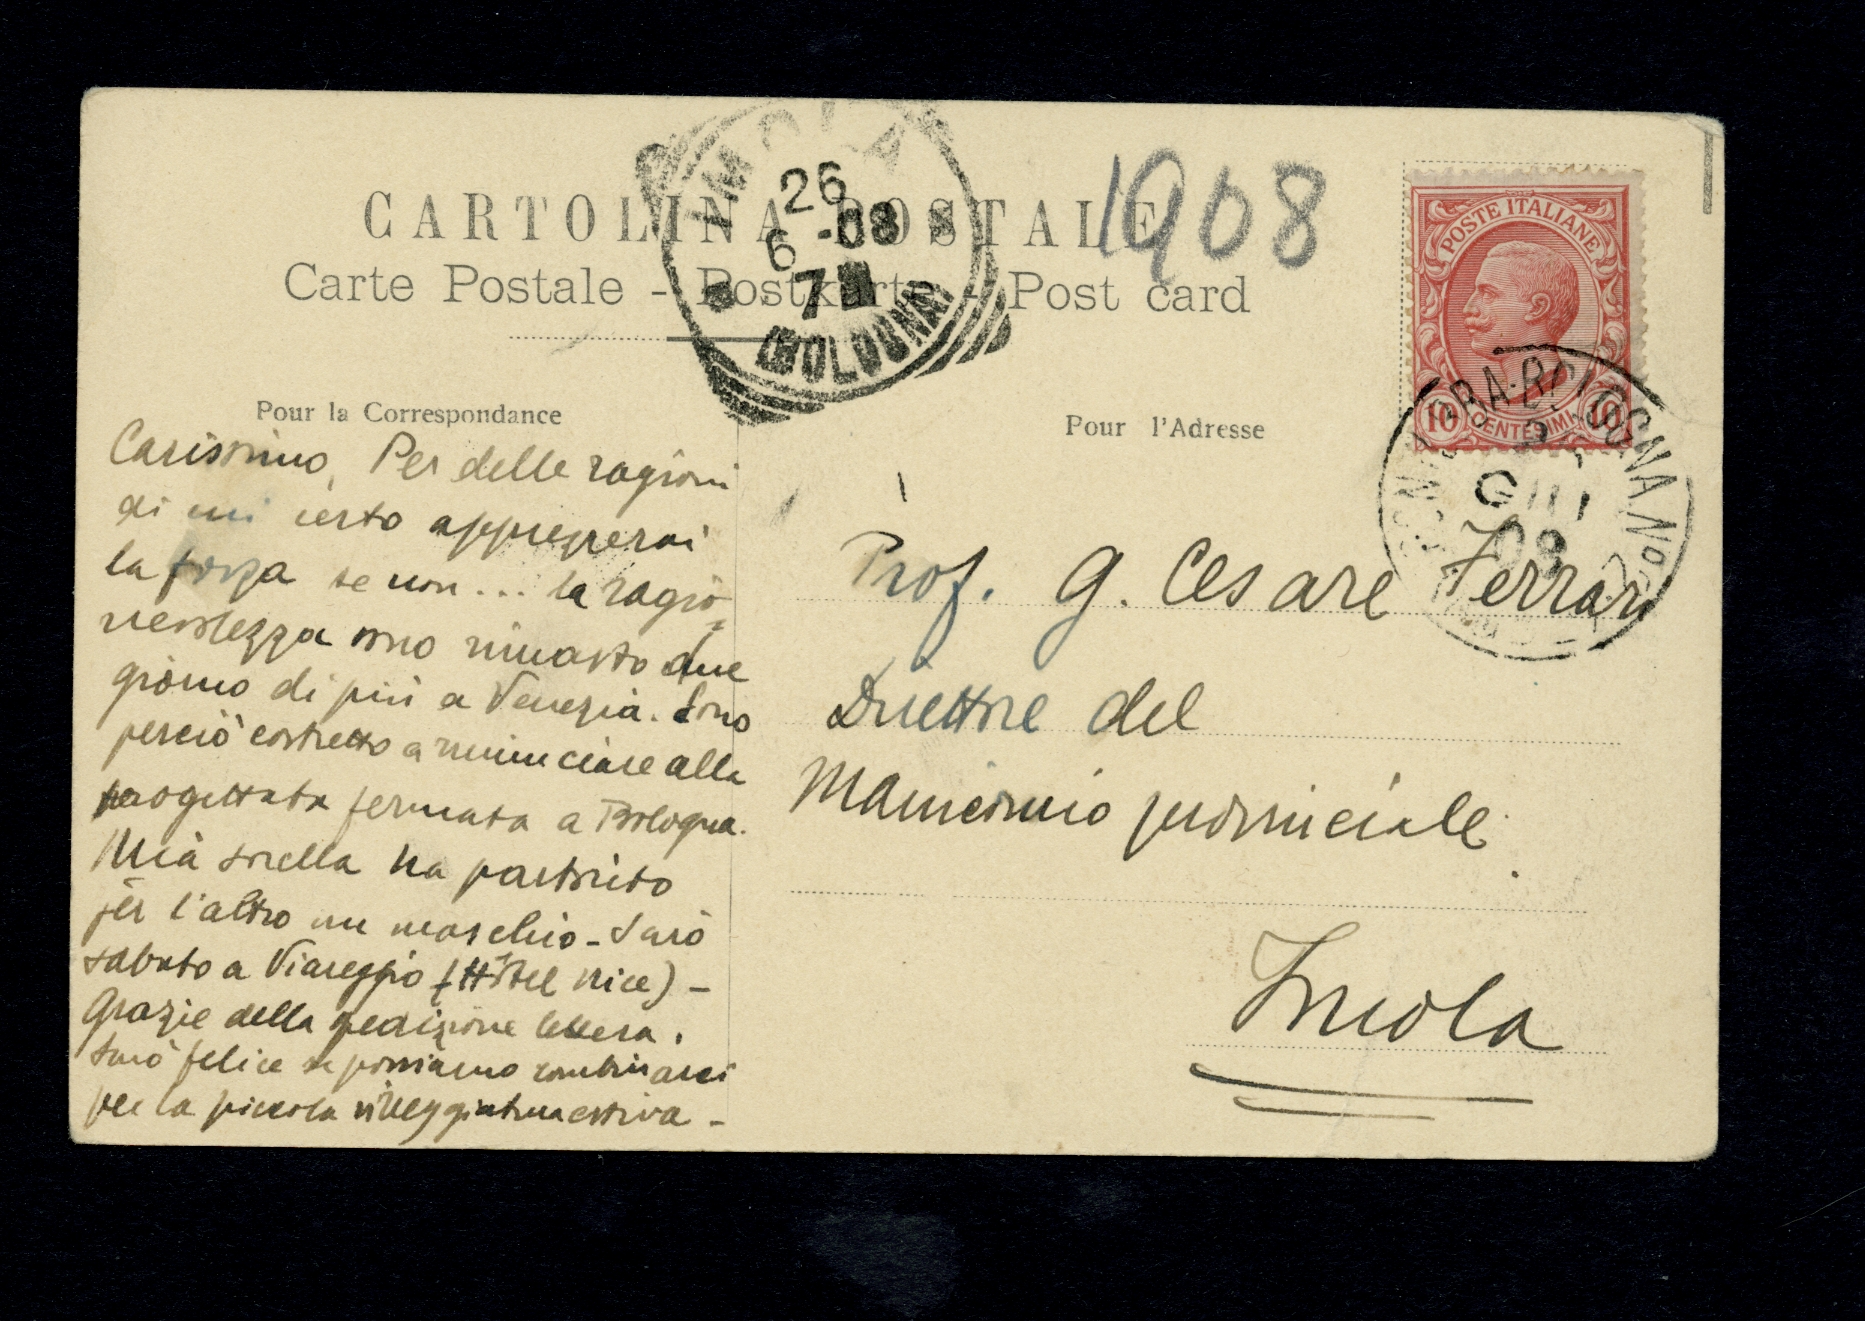 CARTOLINA POSTALE
1908
Carte Postale - Postkarte - Post card
IMOLA
26
6 -08
7
(BOLOGNA)
POSTE ITALIANE
10 CENTESIMI 10
BOLOGNA No
GIU
08
Pour la Correspondance
Carissimo, Per delle ragioni
di cui certo apprezzerai
la forza se non... la ragio-
nevolezza sono rimasto due
giorno di più a Venezia. Sono
perciò costretto a rinunciare alla
progettata fermata a Bologna.
Mia sorella ha partorito
ier l'altro un maschio - Sarò
sabato a Viareggio (Hôtel Nice) -
Grazie della spedizione lettera.
Sarò felice se possiamo combinarci
per la piccola villeggiatura estiva -
Pour l'Adresse
Prof. G. Cesare Ferrari
Direttore del
Manicomio provinciale
Imola